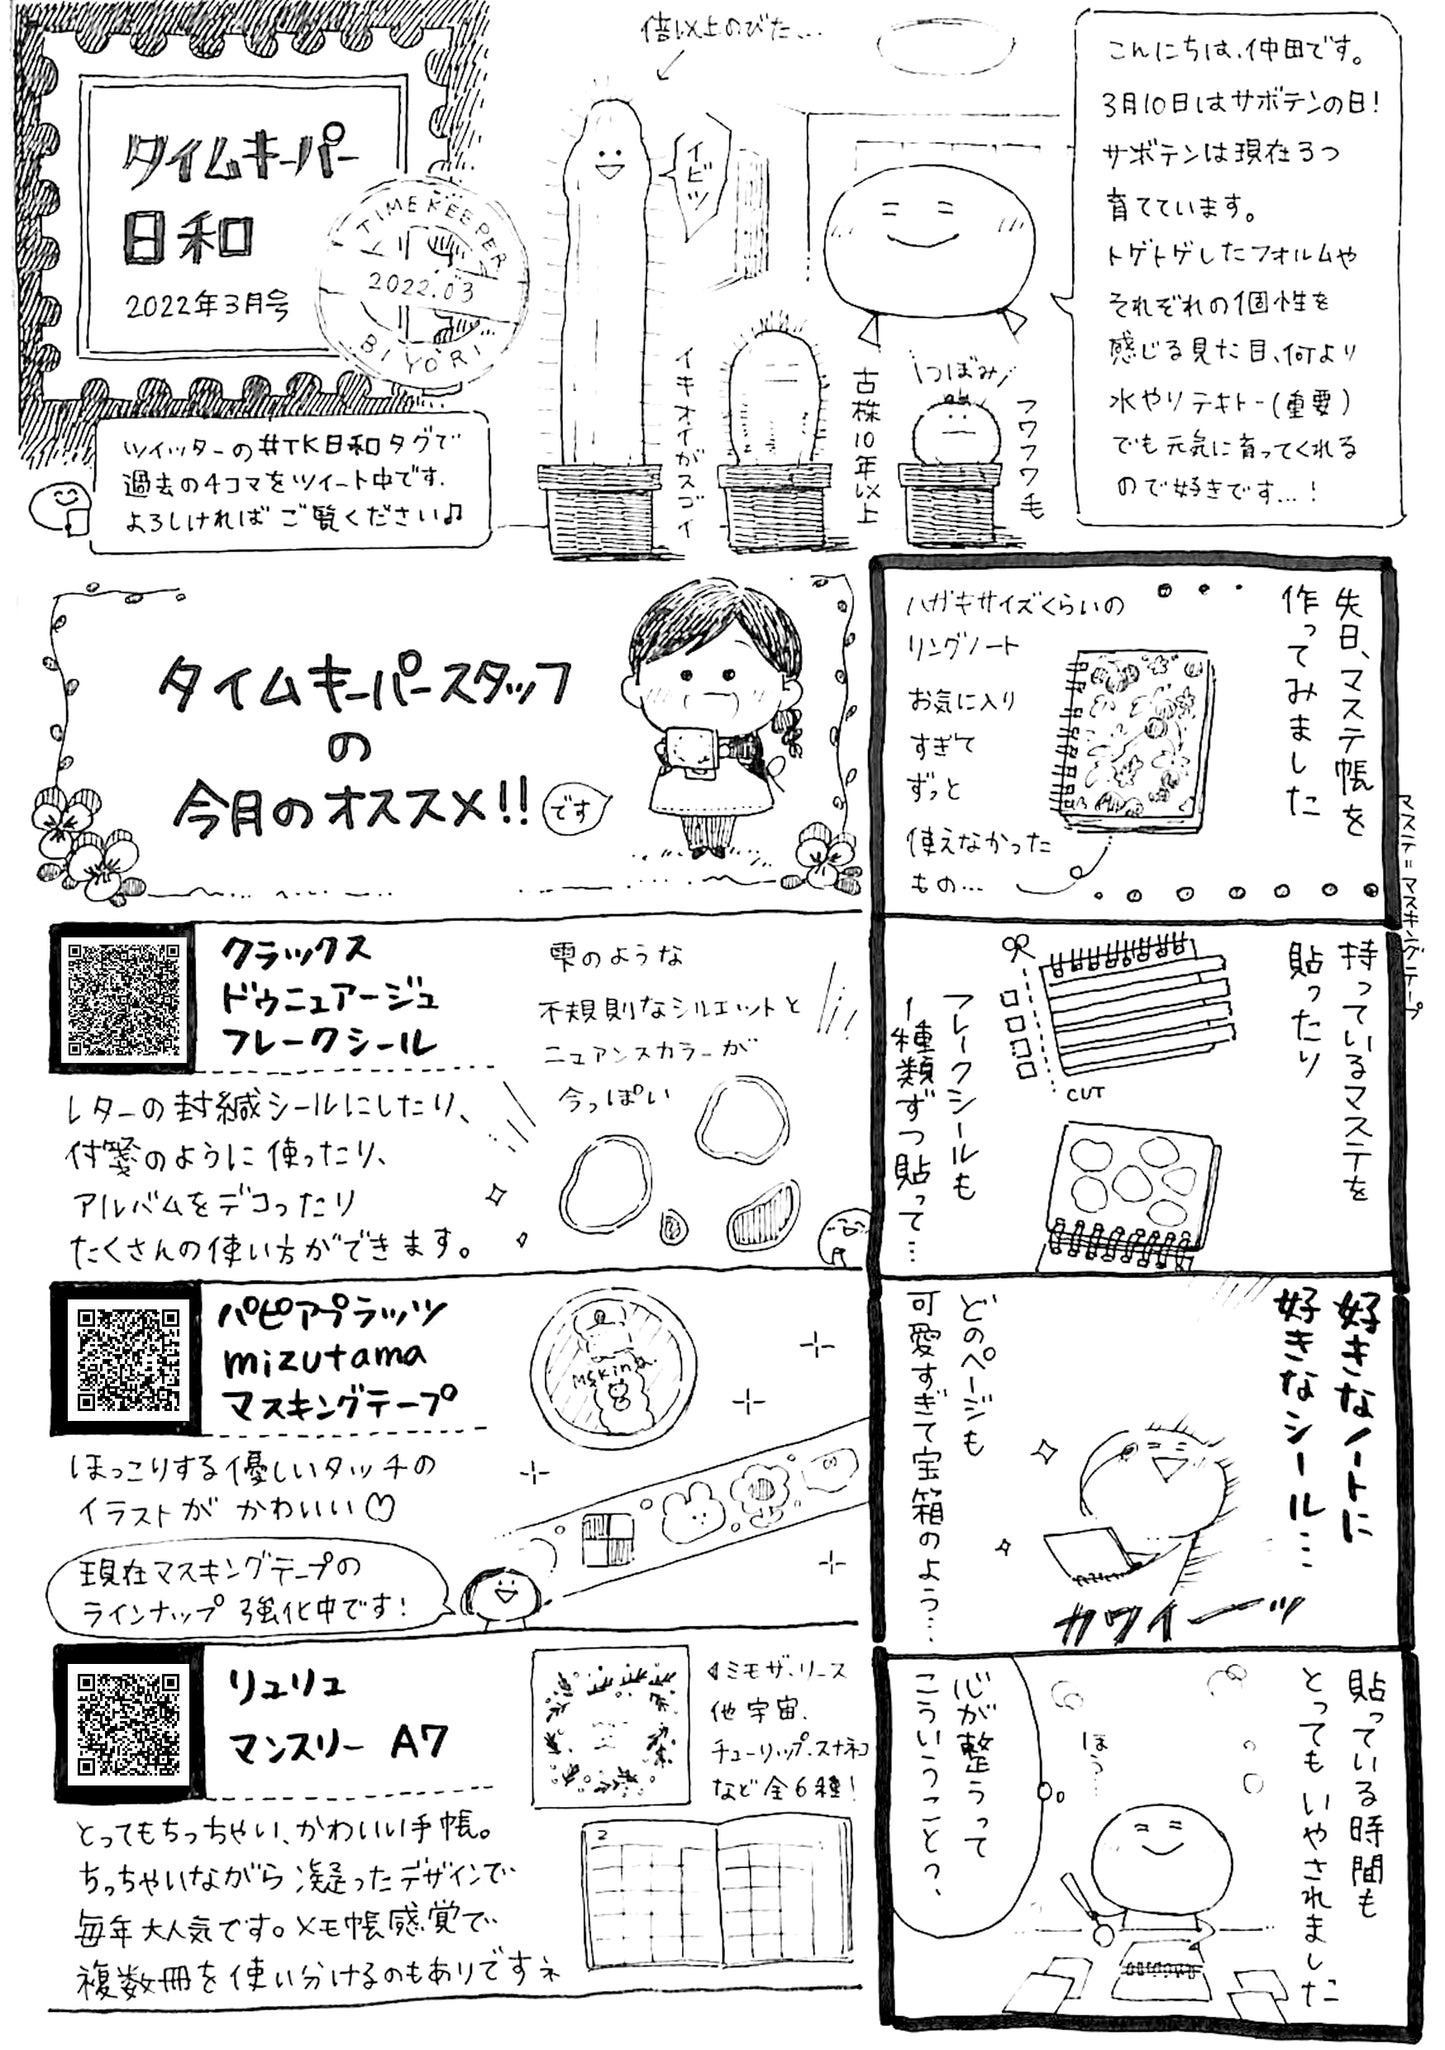 タイムキーパー
日和
2022年3月号
TIMEKEEPER
2022.03
BIYORI
ツイッターの#TK日和タグで
過去の4コマをツイート中です.
よろしければご覧ください♫
倍以上のびた...
イビツ
イキオイがスゴイ
古株10年以上
つぼみ
フワフワ毛
こんにちは、仲田です。
3月10日はサボテンの日!
サボテンは現在3つ
育てています。
トゲトゲしたフォルムや
それぞれの個性を
感じる見た目、何より
水やりテキトー(重要)
でも元気に育ってくれる
ので好きです...!
タイムキーパースタッフ
の
今月のオススメ!!
です
クラックス
ドゥニュアージュ
フレークシール
雫のような
不規則なシルエットと
ニュアンスカラーが
今っぽい
レターの封緘シールにしたり、
付箋のように使ったり、
アルバムをデコったり
たくさんの使い方ができます。
パピアプラッツ
mizutama
マスキングテープ
ほっこりする優しいタッチの
イラストが かわいい♡
現在マスキングテープの
ラインナップ 強化中です!
リュリュ
マンスリー A7
◁ミモザ・リース
他宇宙、
チューリップ、スナネコ
など全6種!
とってもちっちゃい、かわいい手帳。
ちっちゃいながら凝ったデザインで
毎年大人気です。メモ帳感覚で
複数冊を使い分けるのもありですネ
2
先日、マステ帳を
作ってみました
ハガキサイズくらいの
リングノート
お気に入り
すぎて
ずっと
使えなかった
もの...
マステ=マスキングテープ
持っているマステを
貼ったり
CUT
フレークシールも
1種類ずつ貼って...
好きなノートに
好きなシール...
どのページも
可愛すぎて宝箱のよう...
カワイーーッ
貼っている時間も
とってもいやされました
ほう...
心が整うって
こういうこと?